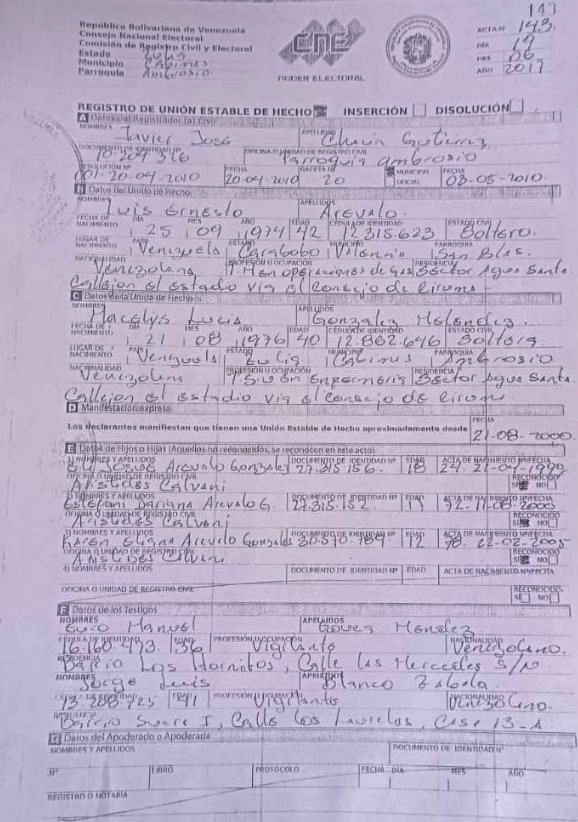 143
República Bolivariana de Venezuela
Consejo Nacional Electoral
Comisión de Registro Civil y Electoral
Estado Zulia
Municipio Cabimas
Parroquia Ambrosio
CNE
PODER ELECTORAL
ACTA Nº 143
DÍA 19
MES 06
AÑO 2017
REGISTRO DE UNIÓN ESTABLE DE HECHO INSERCIÓN DISOLUCIÓN
A Datos del Registrador (a) Civil
NOMBRES Javier José APELLIDOS Gutierrez
DOCUMENTO DE IDENTIDAD Nº 10.204.376 OFICINA O UNIDAD DE REGISTRO CIVIL Parroquia ambrosio
RESOLUCIÓN Nº 001-20-04-2010 FECHA 20-04-2010 GACETA Nº 20 MUNICIPAL OFICIAL FECHA 03-05-2010.
B Datos del Unido de Hecho
NOMBRES Luis Ernesto APELLIDOS Arevalo.
FECHA DE NACIMIENTO DÍA 25 MES 09 AÑO 1974 EDAD 42 CÉDULA DE IDENTIDAD 12.315.623 ESTADO CIVIL Soltero.
LUGAR DE NACIMIENTO PAÍS Venezuela ESTADO Carabobo MUNICIPIO Valencia PARROQUIA San Blas.
NACIONALIDAD Venezolana PROFESIÓN U OCUPACIÓN T.M en operaciones de gas RESIDENCIA Sector Agua Santa
Callejon el estadio via al consejo de ciruma
C Datos de la Unida de Hecho
NOMBRES Maselys Lucia APELLIDOS Gonzalez Melendez.
FECHA DE NACIMIENTO DÍA 21 MES 08 AÑO 1976 EDAD 40 CÉDULA DE IDENTIDAD 12.862.646 ESTADO CIVIL Soltera.
LUGAR DE NACIMIENTO PAÍS Venezuela ESTADO Zulia MUNICIPIO Cabimas PARROQUIA Ambrosio
NACIONALIDAD Venezolana PROFESIÓN U OCUPACIÓN T.S.U en Enfermeria RESIDENCIA Sector Agua Santa.
Callejon el estadio via al consejo de ciruma
D Manifestación expresa
Los declarantes manifiestan que tienen una Unión Estable de Hecho aproximadamente desde FECHA 21-08-2000.
E Datos de Hijos o Hijas (Aquellos no reconocidos, se reconocen en este acto)
1) NOMBRES Y APELLIDOS Josue Arevalo Gonzalez DOCUMENTO DE IDENTIDAD Nº 27.315.156. EDAD 18 ACTA DE NACIMIENTO Nº/FECHA 24. 21-04-1999
OFICINA O UNIDAD DE REGISTRO CIVIL Aristides Calvani RECONOCIDO SI NO
2) NOMBRES Y APELLIDOS Estefani Dariana Arevalo G. DOCUMENTO DE IDENTIDAD Nº 27.315.152. EDAD 17 ACTA DE NACIMIENTO Nº/FECHA 72. 11-08-2000
OFICINA O UNIDAD DE REGISTRO CIVIL Aristides Calvani RECONOCIDO SI NO
3) NOMBRES Y APELLIDOS Karen Arevalo Gonzalez DOCUMENTO DE IDENTIDAD Nº 30.570.784 EDAD 12 ACTA DE NACIMIENTO Nº/FECHA 78. 22-02-2005
OFICINA O UNIDAD DE REGISTRO CIVIL Aristides Calvani RECONOCIDO SI NO
4) NOMBRES Y APELLIDOS DOCUMENTO DE IDENTIDAD Nº EDAD ACTA DE NACIMIENTO Nº/FECHA
OFICINA O UNIDAD DE REGISTRO CIVIL RECONOCIDO SI NO
F Datos de los Testigos
NOMBRES Euro Manuel APELLIDOS Mendez
CÉDULA DE IDENTIDAD 16.160.473. EDAD 36 PROFESIÓN U OCUPACIÓN Vigilante NACIONALIDAD Venezolano.
RESIDENCIA Barrio Los Hornitos, Calle las Mercedes S/N
NOMBRES Jorge Luis APELLIDOS Blanco Zabala.
CÉDULA DE IDENTIDAD 13.208.725 EDAD 41 PROFESIÓN U OCUPACIÓN Vigilante NACIONALIDAD Venezolano.
RESIDENCIA Barrio Sucre I, Calle Los Laureles, Casa 13-A
G Datos del Apoderado o Apoderada
NOMBRES Y APELLIDOS DOCUMENTO DE IDENTIDAD Nº
Nº LIBRO PROTOCOLO FECHA DÍA MES AÑO
REGISTRO O NOTARÍA